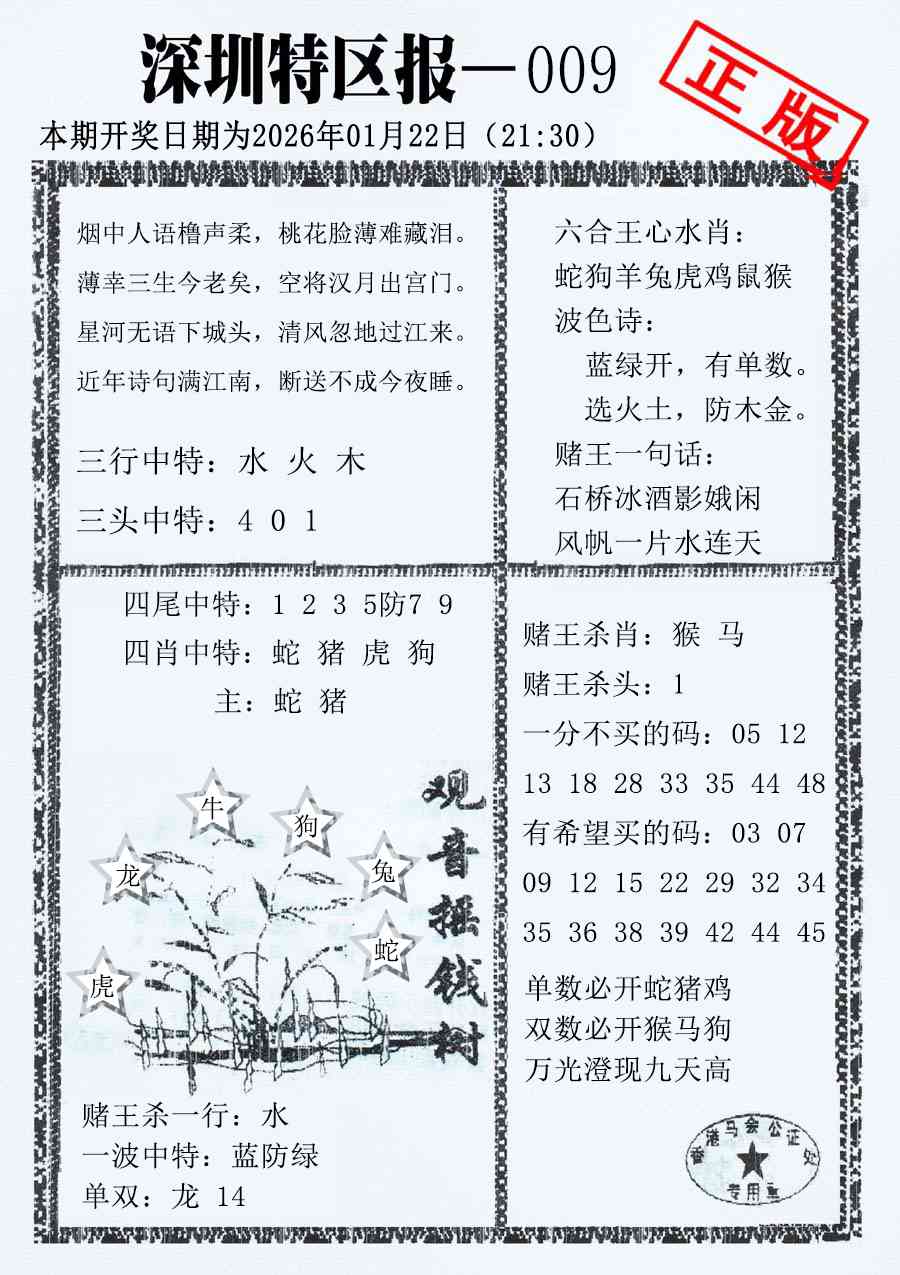 深圳特区报—009
正版
本期开奖日期为2026年01月22日（21:30）
烟中人语橹声柔，桃花脸薄难藏泪。
薄幸三生今老矣，空将汉月出宫门。
星河无语下城头，清风忽地过江来。
近年诗句满江南，断送不成今夜睡。
三行中特：水 火 木
三头中特：4 0 1
六合王心水肖：
蛇狗羊兔虎鸡鼠猴
波色诗：
蓝绿开，有单数。
选火土，防木金。
赌王一句话：
石桥冰酒影娥闲
风帆一片水连天
四尾中特：1 2 3 5防7 9
四肖中特：蛇 猪 虎 狗
主：蛇 猪
观音摇钱树
牛
狗
龙
兔
蛇
虎
赌王杀一行：水
一波中特：蓝防绿
单双：龙 14
赌王杀肖：猴 马
赌王杀头：1
一分不买的码：05 12
13 18 28 33 35 44 48
有希望买的码：03 07
09 12 15 22 29 32 34
35 36 38 39 42 44 45
单数必开蛇猪鸡
双数必开猴马狗
万光澄现九天高
香港马会公证处
专用章